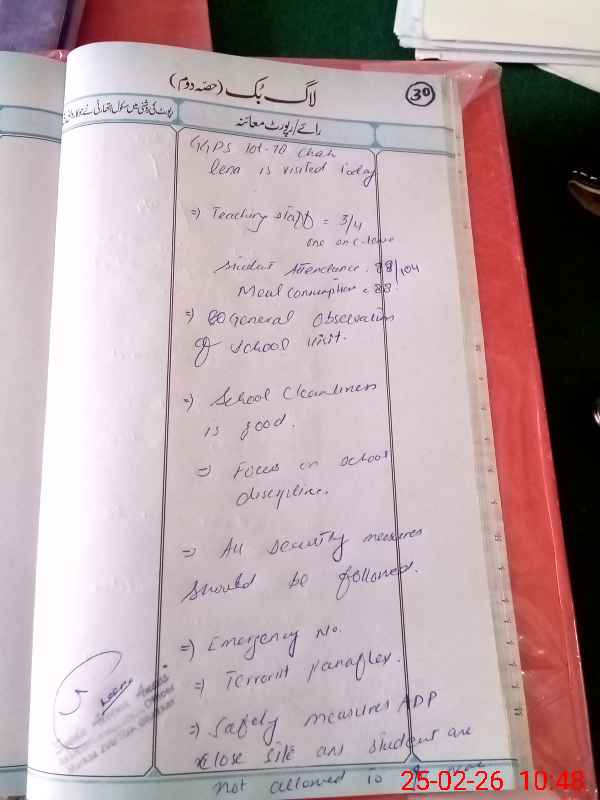 لاگ بُک (حصّہ دوم)
30
رائے/رپورٹ معائنہ
GGPS 101-10 Chah
is visited today
=) Teaching staff = 3/4
one on C-leave
Student Attendance. 88/104
Meal Consumption = 88.
=) General Observation
of school visit.
=) School Cleanliness
is good.
=) Focus on school
discipline.
=) All security measures
should be followed.
=) Emergency No.
=) Terrorist Panaflex.
=) Safety measures ADP
close site and student are
not allowed to
25-02-26 10:48